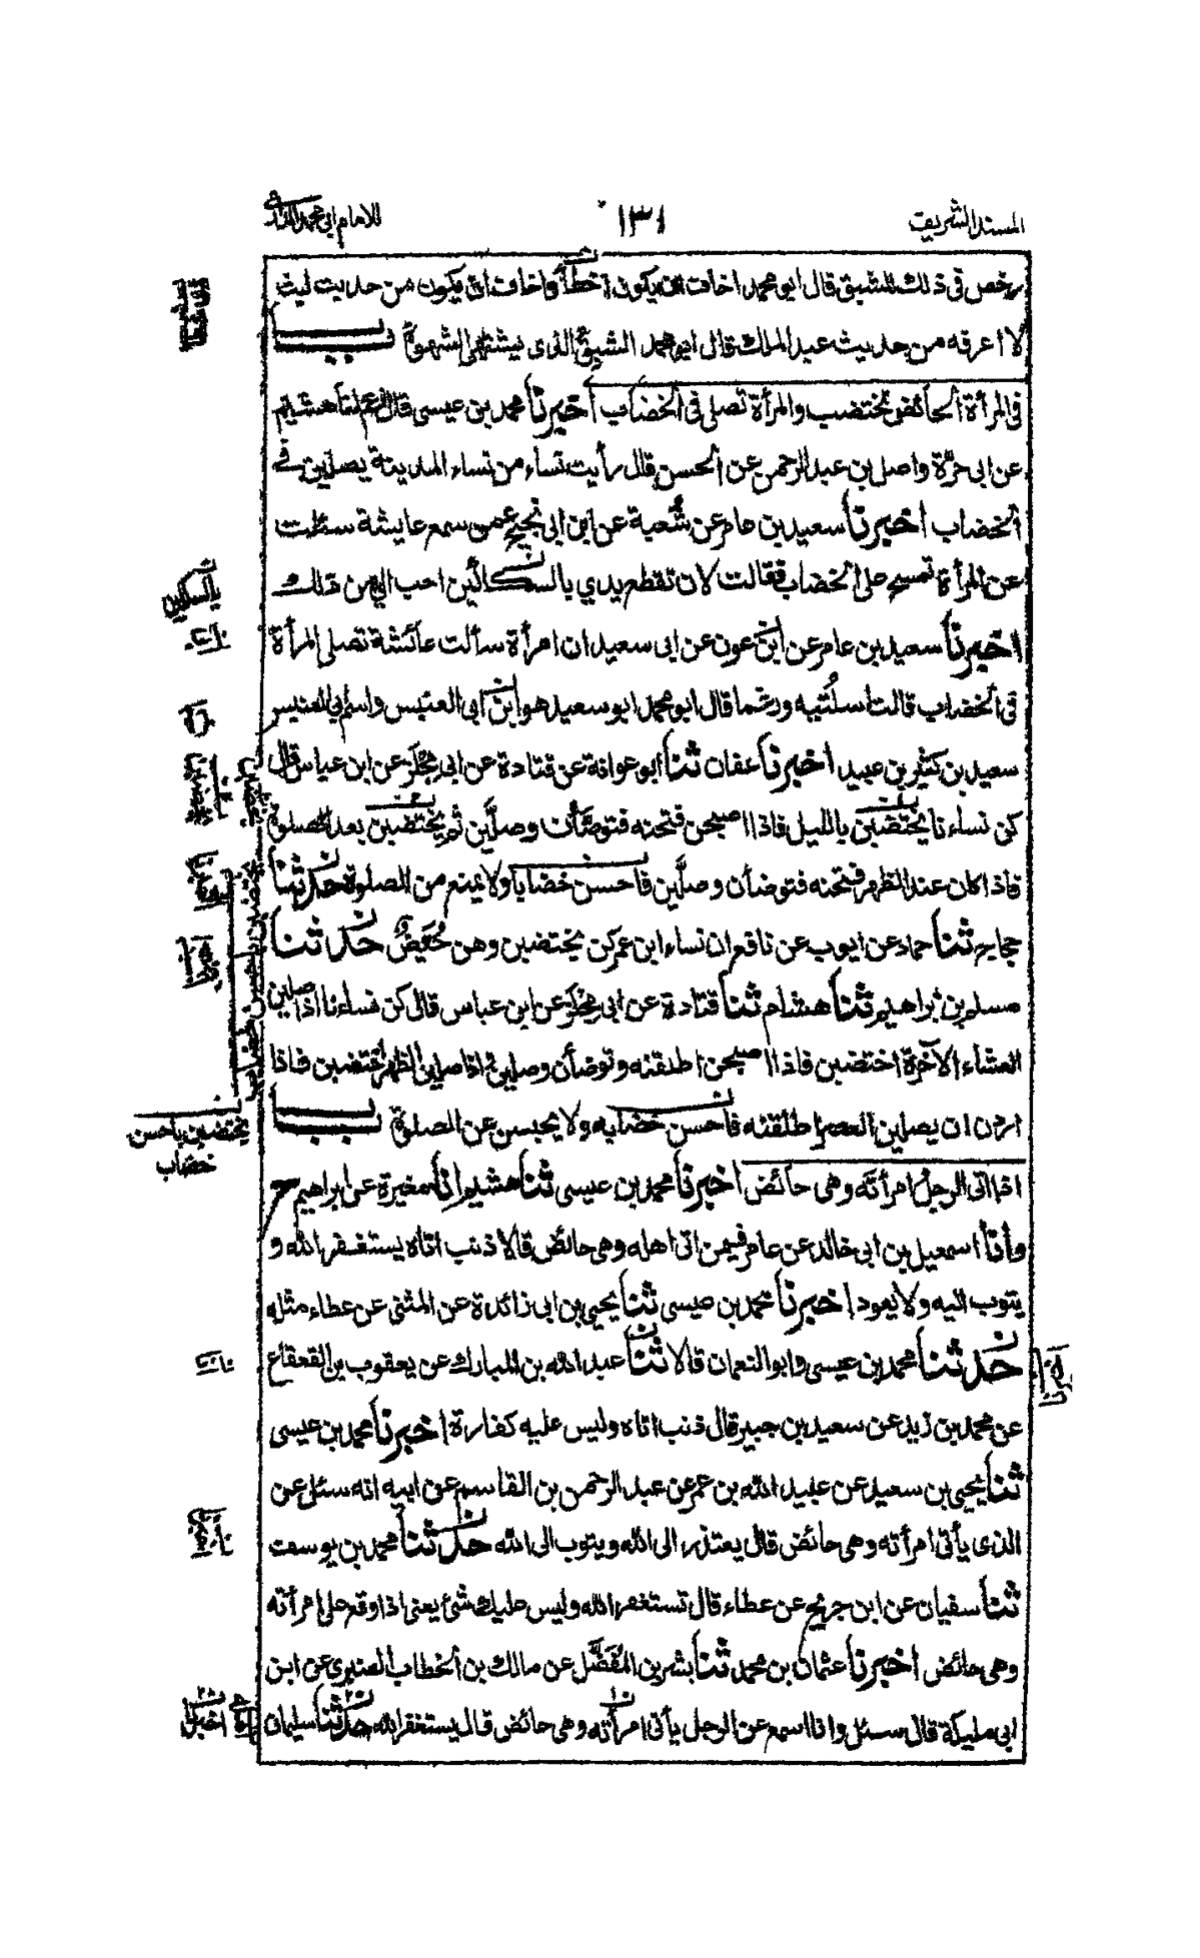 المسند الشريف
١٣١
للامام ابى محمد الدارمى
رخص فى ذلك للشبق قال ابو محمد اخاف ان يكون اخطأ واخاف ان يكون من حديث ليث
لا اعرفه من حديث عبد الملك قال ابو محمد الشبق الذى يشتهى الشهوة باب
فى المرأة الحائض تختضب والمرأة تصلى فى الخضاب اخبرنا محمد بن عيسى قال هشيم
عن ابى حرة واصل بن عبد الرحمن عن الحسن قال رأيت نساء من نساء المدينة يصلين فى
الخضاب اخبرنا سعيد بن عامر عن شعبة عن ابن ابى نجيح عمن سمع عايشة سئلت
عن المرأة تمسح على الخضاب فقالت لان تقطع يدي بالسكاكين احب الي من ذلك
اخبرنا سعيد بن عامر عن ابن عون عن ابى سعيد ان امرأة سألت عائشة تصلى المرأة
فى الخضاب قالت اسلتيه ورغما قال ابو محمد ابو سعيد هو ابن ابى العنبس واسم ابى العنبس
سعيد بن كثير بن عبيد اخبرنا عفان ثنا ابو عوانة عن قتادة عن ابى مجلز عن ابن عباس قال
كن نساءنا يختضبن بالليل فاذا اصبحن فتحنه فتوضأن وصلين ثم يختضبن بعد الصلوة
فاذا كان عند الظهر فتحنه فتوضأن وصلين فاحسن خضابا ولا يمنع من الصلوة حدثنا
حجاج ثنا حماد عن ايوب عن نافع ان نساء ابن عمر كن يختضبن وهن حيض حدثنا
مسلم بن ابراهيم ثنا هشام ثنا قتادة عن ابى مجلز عن ابن عباس قال كن نساءنا اذا صلين
العشاء الآخرة اختضبن فاذا اصبحن اطلقنه وتوضأن وصلين واذا صلين الظهر اختضبن فاذا
اردن ان يصلين العصر اطلقنه فاحسن خضابه ولا يحبسن عن الصلوة باب
اذا اتى الرجل امرأته وهى حائض اخبرنا محمد بن عيسى ثنا هشيم انا مغيرة عن ابراهيم ح
وأنا اسمعيل بن ابى خالد عن عامر فيمن اتى اهله وهى حائض قالا ذنب اتاه يستغفر الله و
يتوب اليه ولا يعود اخبرنا محمد بن عيسى ثنا يحيى بن ابى زائدة عن المثنى عن عطاء مثله
حدثنا محمد بن عيسى وابو النعمان قالا ثنا عبد الله بن المبارك عن يعقوب بن القعقاع
عن محمد بن زيد عن سعيد بن جبير قال ذنب اتاه وليس عليه كفارة اخبرنا محمد بن عيسى
ثنا يحيى بن سعيد عن عبيد الله بن عمر عن عبد الرحمن بن القاسم عن ابيه انه سئل عن
الذى يأتى امرأته وهى حائض قال يعتذر الى الله ويتوب الى الله حدثنا محمد بن يوسف
ثنا سفيان عن ابن جريج عن عطاء قال تستغفر الله وليس عليك شئ يعنى اذا وقع على امرأته
وهى حائض اخبرنا عثمان بن محمد ثنا بشر بن المفضل عن مالك بن الخطاب العنبرى عن ابن
ابى مليكة قال سئل وانا اسمع عن الرجل يأتى امرأته وهى حائض قال يستغفر الله حدثنا سليمان
بالسكين
يختضبن باحسن
خضاب
اخبرنا